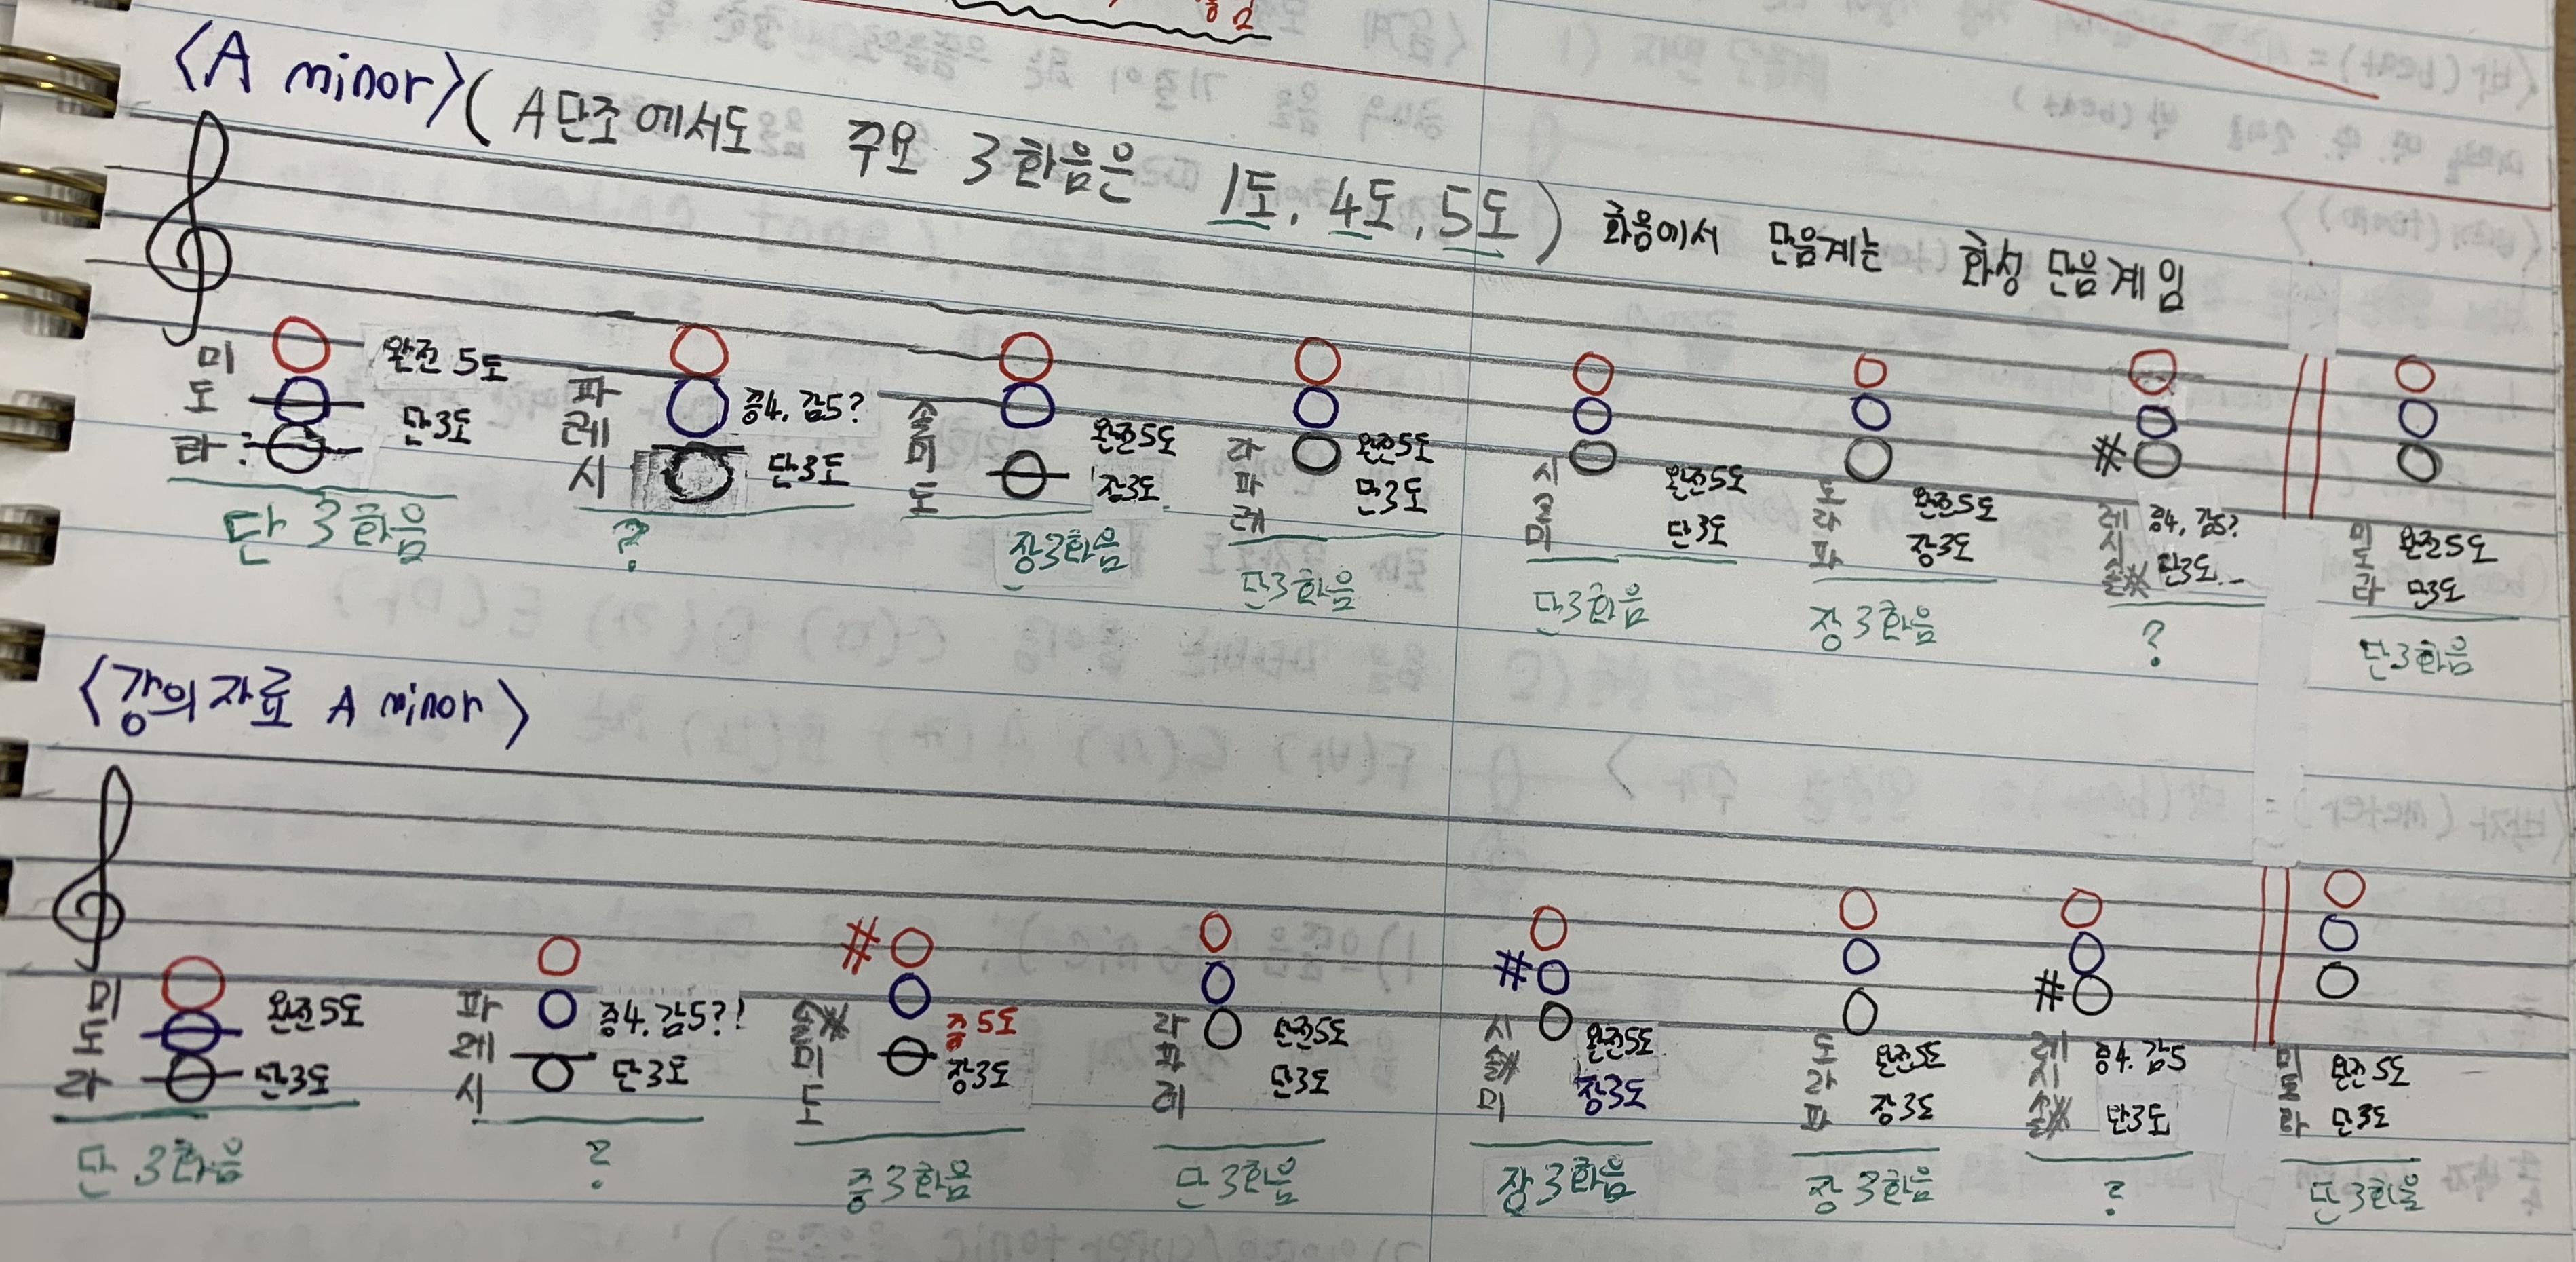 <A minor> (A단조에서도 주요 3화음은 1도, 4도, 5도) 화음에서 단음계는 화성 단음계임
미 완전5도
도 단3도
라
단3화음
파 증4, 감5?
레
시 단3도
?
솔 완전5도
미
도 장3도
장3화음
라 완전5도
파 단3도
레
단3화음
시 완전5도
솔
미 단3도
단3화음
도 완전5도
라
파 장3도
장3화음
#
레 증4, 감5?
시
솔# 단3도
?
미 완전5도
도
라 단3도
단3화음
<강의자료 A minor>
미 완전5도
도
라 단3도
단3화음
파 증4. 감5?!
레
시 단3도
?
#
솔# 증5도
미 장3도
도
증3화음
라 완전5도
파 단3도
레
단3화음
#
시 완전5도
솔#
미 장3도
장3화음
도 완전5도
라
파 장3도
장3화음
#
레 증4. 감5
시
솔# 단3도
?
미 완전5도
도
라 단3도
단3화음